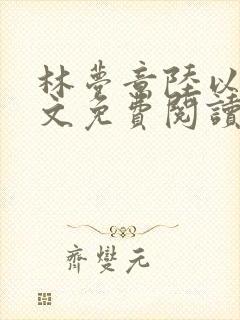 林夢章陸以
文免費閱讀
齊燮元